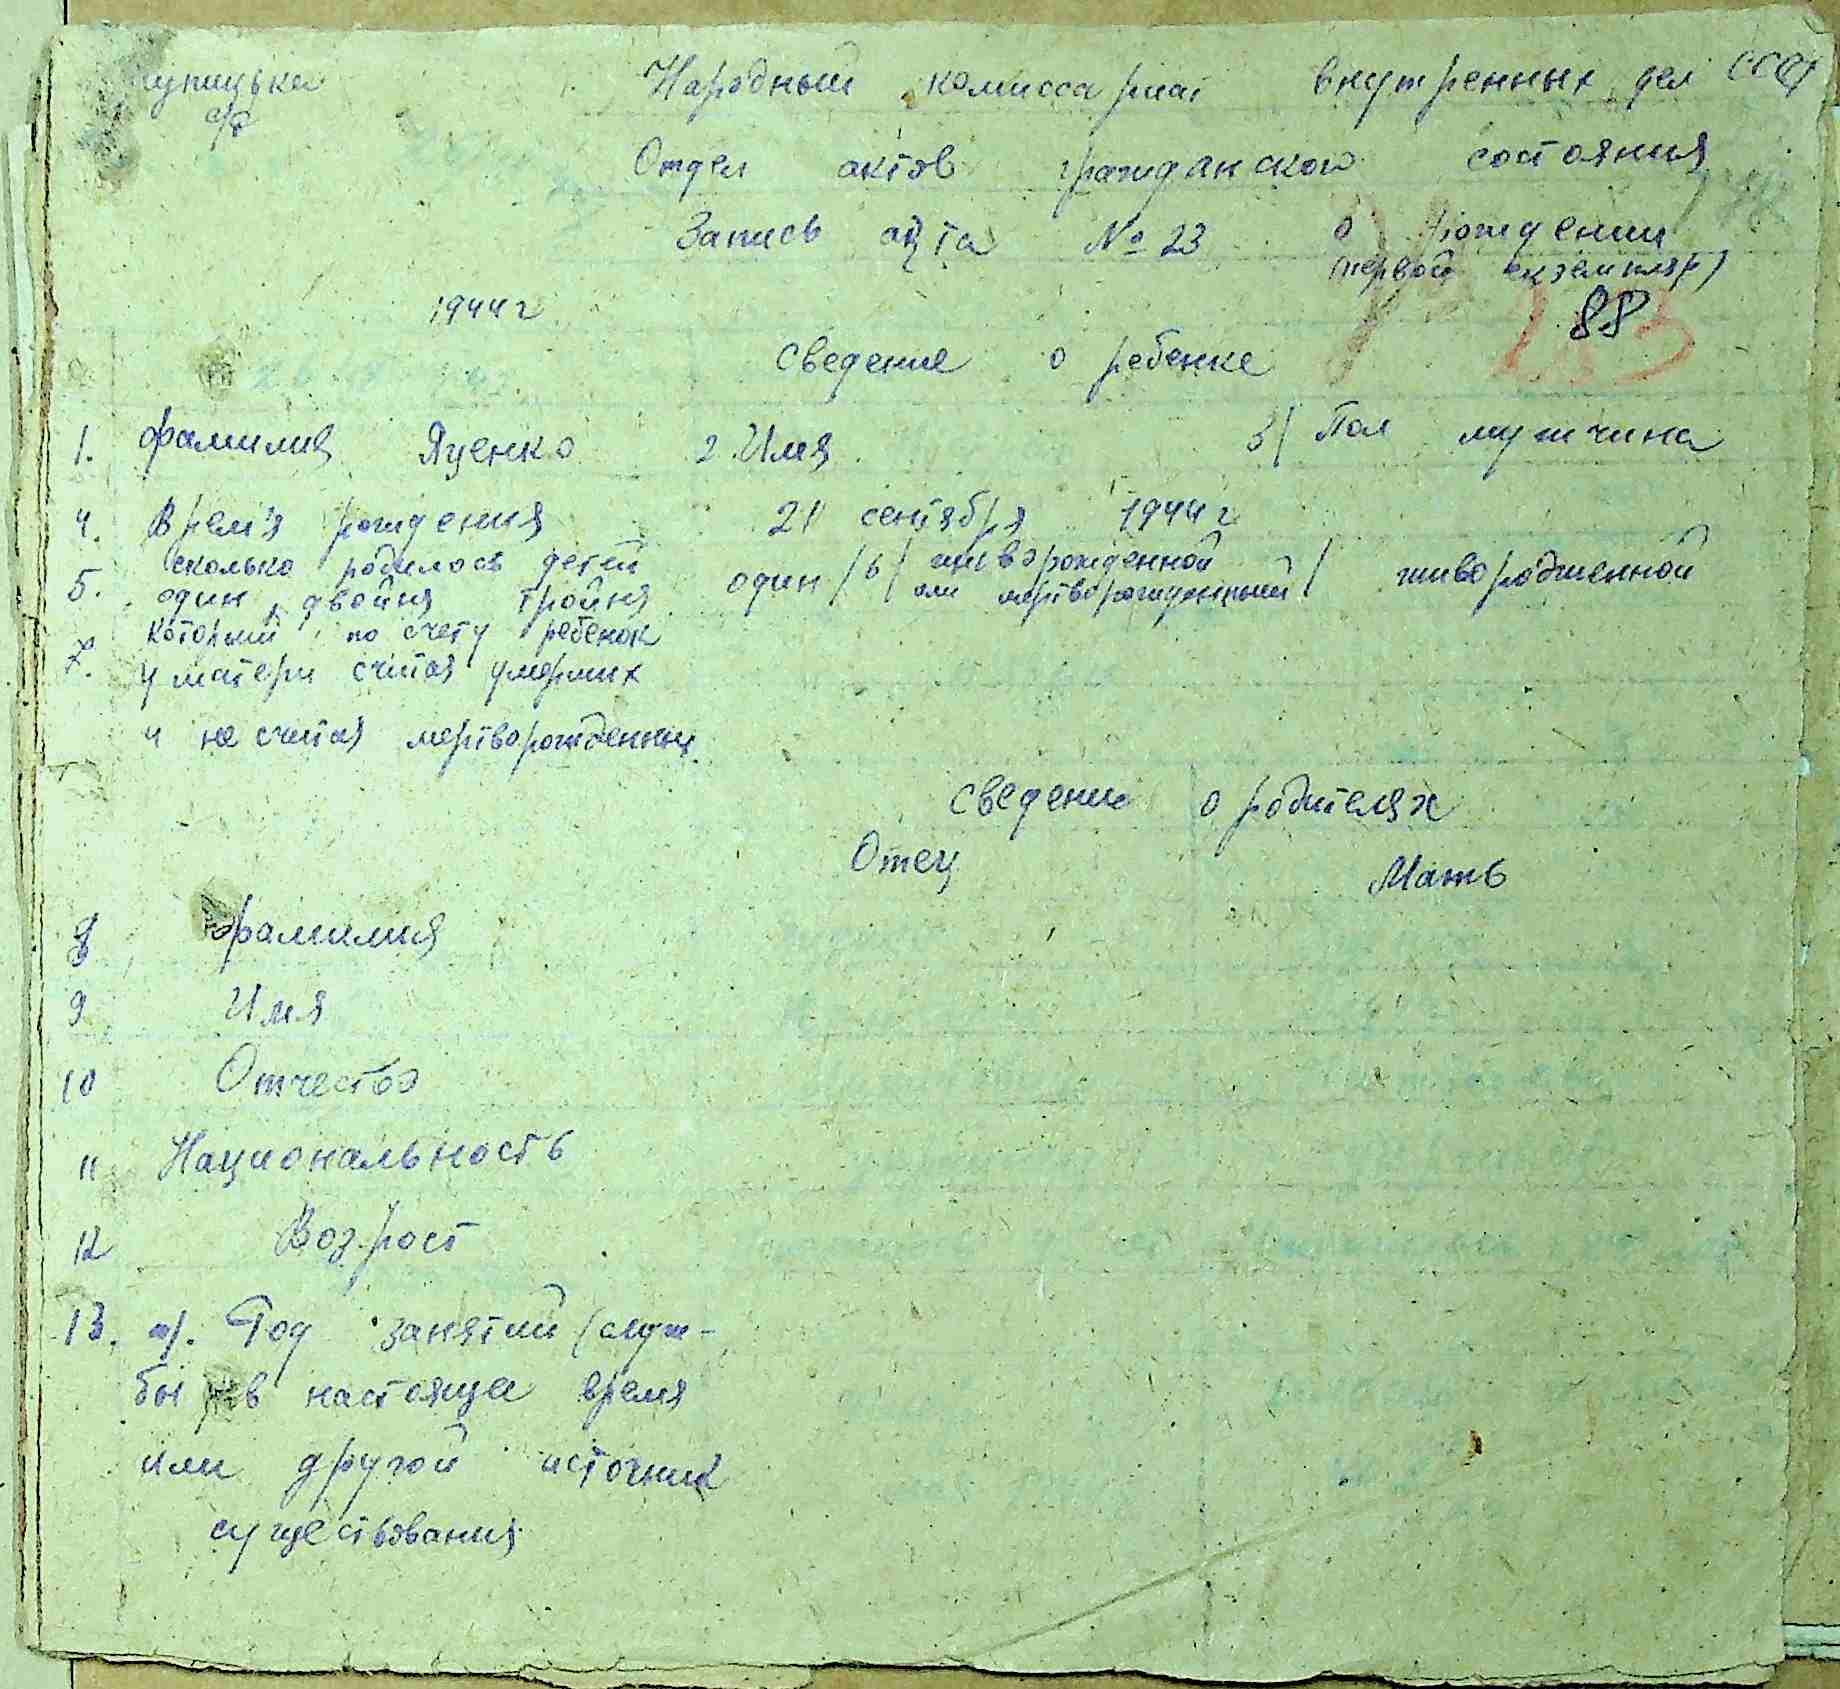 Народный комиссариат внутренных дел СССР
с/р
Отдел актов гражданского состояния
Запись акта № 23 о рождении
(первой екземпляр)
1944 г
88
Сведение о ребенке
1. фамилия Яценко 2. Имя 3/ Пол мужчина
4. Время рождения 21 сентября 1944 г
5. сколько родилось детей
один, двойня тройня один /6/ живорожденной
или мертворожденный / живородженной
7. который по счету ребенок
у матери считая умерших
и не считая мертворожденных
Сведения о родителях
Отец Мать
8 фамилия
9 Имя
10 Отчество
11 Национальность
12 Возрост
13. а/. Род занятий (служ-
бы в настояще время
или другой источник
существования